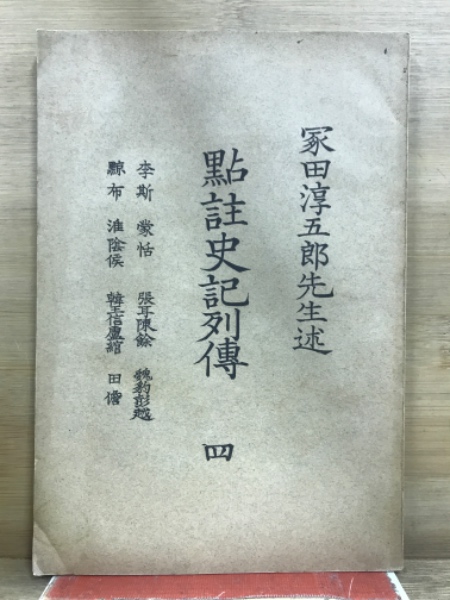 冢田淳五郎先生述
點註史記列傳 四
李斯 蒙恬 張耳陳餘 魏豹彭越
黥布 淮陰侯 韓王信盧綰 田儋